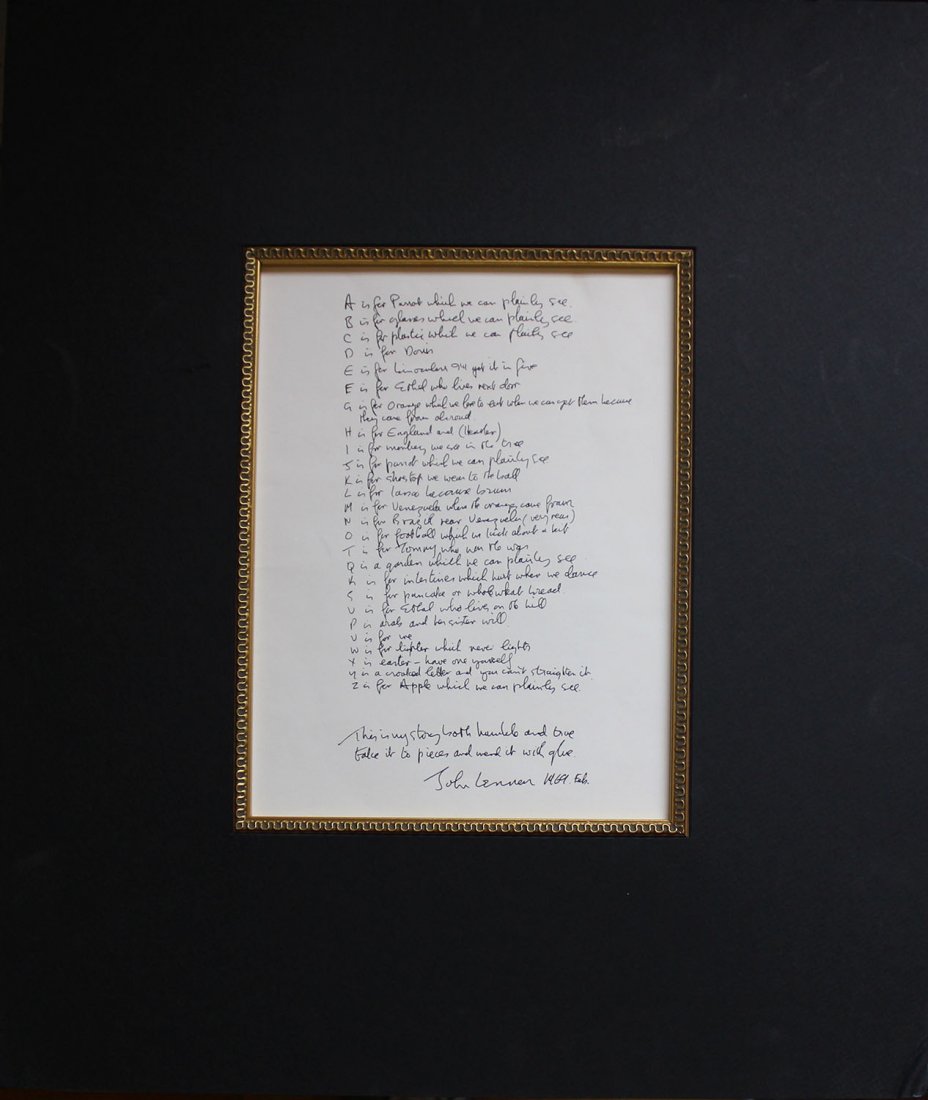 A is for Parrot which we can plainly see
B is for glasses which we can plainly see
C is for plastic which we can plainly see
D is for Doris
E is for binoculars I'll get it in five
F is for Ethel who lives next door
G is for orange which we love to eat when we can get them because
they come from abroad
H is for England and (Heather)
I is for monkey we see in the tree
J is for parrot which we can plainly see
K is for shoetop we wear to the ball
L is for because brown
M is for Venezuela where the oranges come from
N is for Brazil near Venezuela (very near)
O is for football which we kick about a bit
T is for Tommy who won the war
Q is a garden which we can plainly see
R is for intestines which hurt when we dance
S is for pancake or whole wheat bread
U is for Ethel who lives on the hill
P is arab and her sister will
V is for me
W is for lighter which never lights
X is easter - have one yourself
Y is a crooked letter and you can't straighten it
Z is for Apple which we can plainly see
This is my story both humble and true
take it to pieces and mend it with glue
John Lennon 1969. Feb.